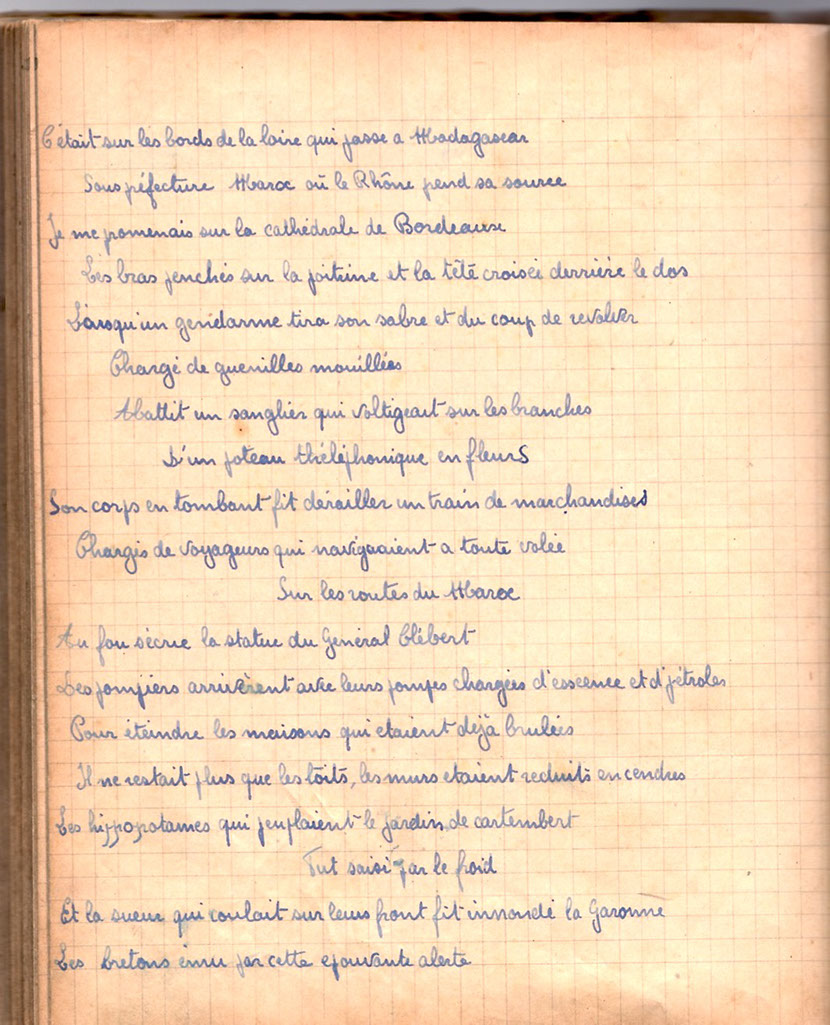 C'était sur les bords de la loire qui passe a Madagascar
Sous péfecture Maroc où le Rhône pend sa source
Je me promenais sur la cathédrale de Bordeause
Les bras penchés sur la poitrine et la tête croiseé derrière le dos
Lorsqu'un gendarme tira son sabre et du coup de revolver
Chargé de guenilles mouillées
Abattit un sanglier qui voltigeait sur les branches
D'un poteau théléphonique en fleurs
Son corps en tombant fit dérailler un train de marchandises
Chargés de voyageurs qui navigaient a toute volée
Sur les routes du Maroc
Au fou sécrie la statue du Genéral Clébert
Les pompiers arrivèrent avec leurs pompes chargées d'esscence et d'pétroles
Pour éteindre les maisons qui etaient déjà brulées
Il ne restait plus que les toits, les murs etaient reduits en cendres
Les hippopotames qui peuplaient le jardin de cartembert
Fut saisi par le froid
Et la sueur qui coulait sur leurs front fit innondé la Garonne
Les bretons ému par cette epouvante alerte